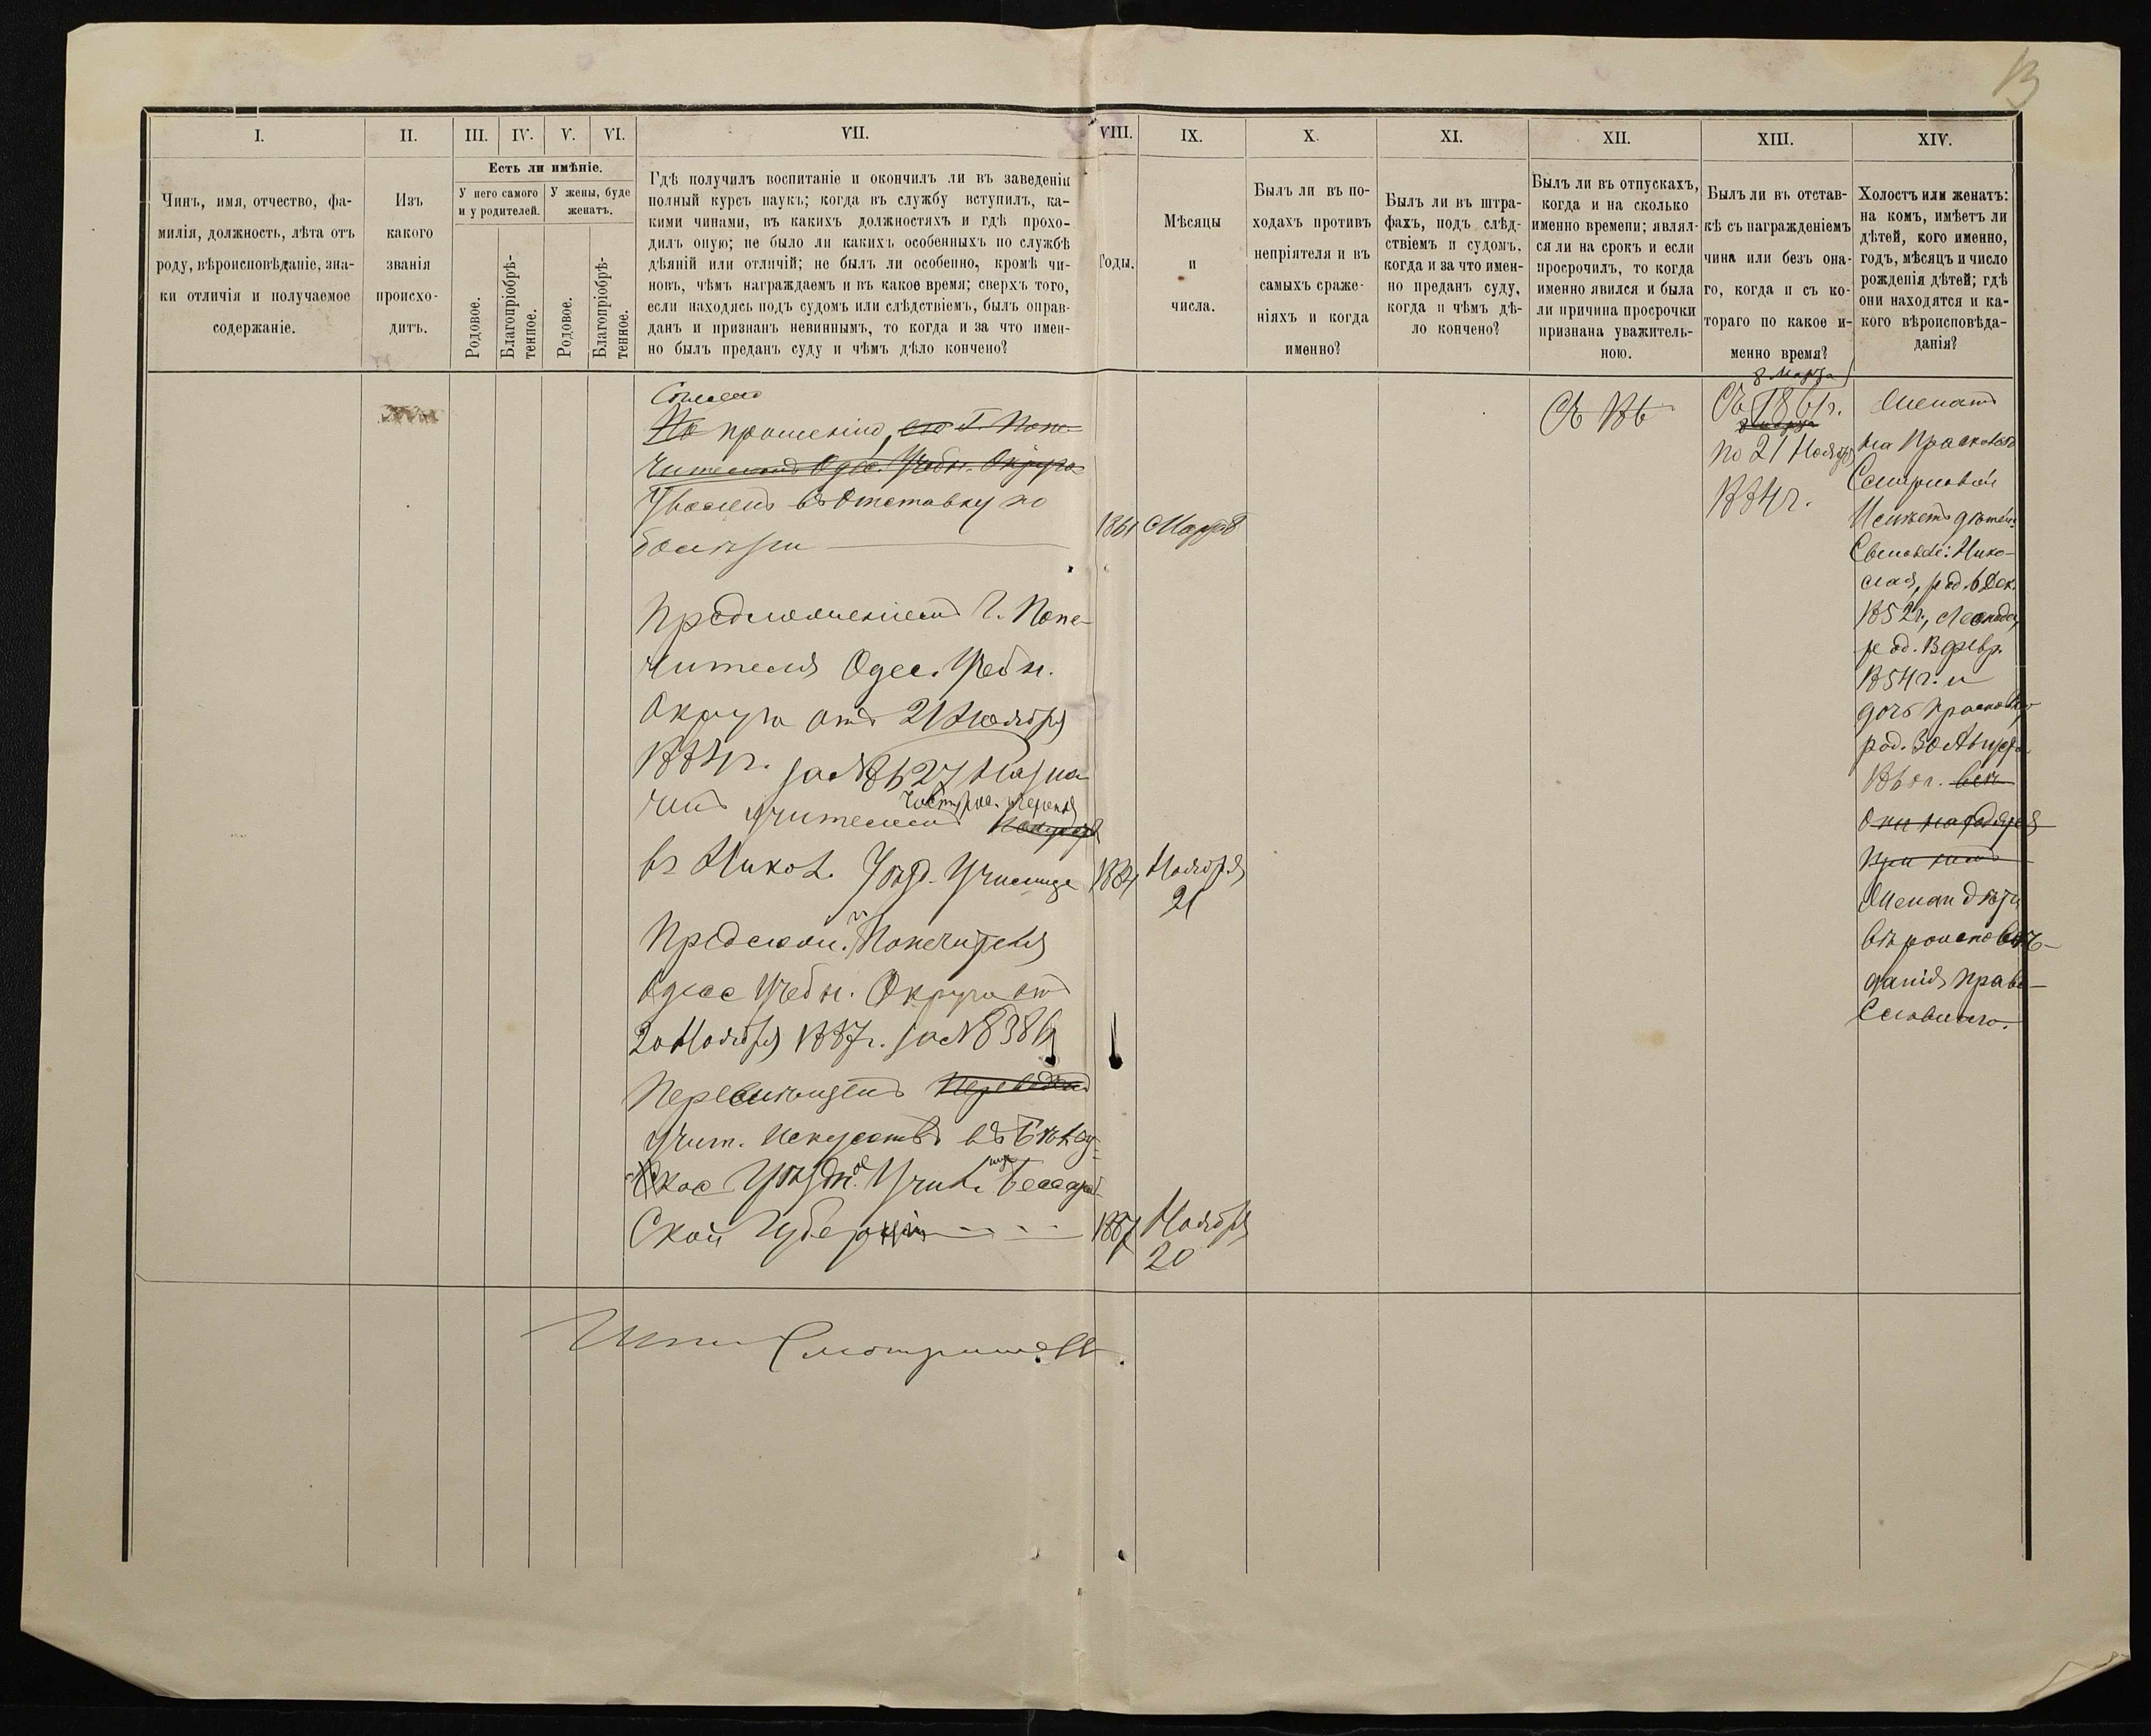 13
I.
II.
III.
IV.
V.
VI.
VII.
VIII.
IX.
X.
XI.
XII.
XIII.
XIV.
Чинъ, имя, отчество, фа-
милія, должность, лѣта отъ
роду, вѣроисповѣданіе, зна-
ки отличія и получаемое
содержаніе.
Изъ
какого
званія
происхо-
дитъ.
Есть ли имѣніе.
У него самого
и у родителей.
У жены, буде
женатъ.
Родовое.
Благопріобрѣ-
тенное.
Родовое.
Благопріобрѣ-
тенное.
Гдѣ получилъ воспитаніе и окончилъ ли въ заведеніи
полный курсъ наукъ; когда въ службу вступилъ, ка-
кими чинами, въ какихъ должностяхъ и гдѣ прохо-
дилъ оную; не было ли какихъ особенныхъ по службѣ
дѣяній или отличій; не былъ ли особенно, кромѣ чи-
новъ, чѣмъ награждаемъ и въ какое время; сверхъ того,
если находясь подъ судомъ или слѣдствіемъ, былъ оправ-
данъ и признанъ невиннымъ, то когда и за что имен-
но былъ преданъ суду и чѣмъ дѣло кончено?
Годы.
Мѣсяцы
и
числа.
Былъ ли въ по-
ходахъ противъ
непріятеля и въ
самыхъ сраже-
ніяхъ и когда
именно?
Былъ ли въ штра-
фахъ, подъ слѣд-
ствіемъ и судомъ,
когда и за что имен-
но преданъ суду,
когда и чѣмъ дѣ-
ло кончено?
Былъ ли въ отпускахъ,
когда и на сколько
именно времени; являл-
ся ли на срокъ и если
просрочилъ, то когда
именно явился и была
ли причина просрочки
признана уважитель-
ною.
Былъ ли въ отстав-
кѣ съ награжденіемъ
чина или безъ она-
го, когда и съ ко-
тораго по какое и-
менно время?
Холостъ или женатъ:
на комъ, имѣетъ ли
дѣтей, кого именно,
годъ, мѣсяцъ и число
рожденія дѣтей; гдѣ
они находятся и ка-
кого вѣроисповѣда-
данія?
Согласно
По прошенію, его Г. Попе-
чителемъ Одес. Учебн. Округа
Уволенъ въ Отставку по
болѣзни
1861 Марта 8
Предложеніемъ Г. Попе-
чителя Одес. Учебн.
Округа отъ 21 Ноября
1884г. за № 8627 назна-
ченъ учителемъ
въ Никол. Уѣзд. Училище 1884 Ноября
21
Предлож. Г. Попечителя
Одесс Учебн. Округа отъ
20 Ноября 1887г. за №8386
Перемѣщенъ Переведенъ
учит. Искусствъ въ
ское Уѣздное Учил. Бессараб-
ской Губерніи 1887 Ноября
20
8 Марта
Съ 1861г.
8 Марта
по 21 Ноября
1884г.
Женатъ
на Прасковьѣ
Имѣетъ дѣтей:
Сыновей: Нико-
лая, род. 6 Дек.
1852г.,
род. 13 февр.
1854г. и
дочь Прасковью
род. 30 Августа
1860г.
Они находятся
при немъ
Жена и дѣти
вѣроисповѣ-
данія Право-
славнаго.